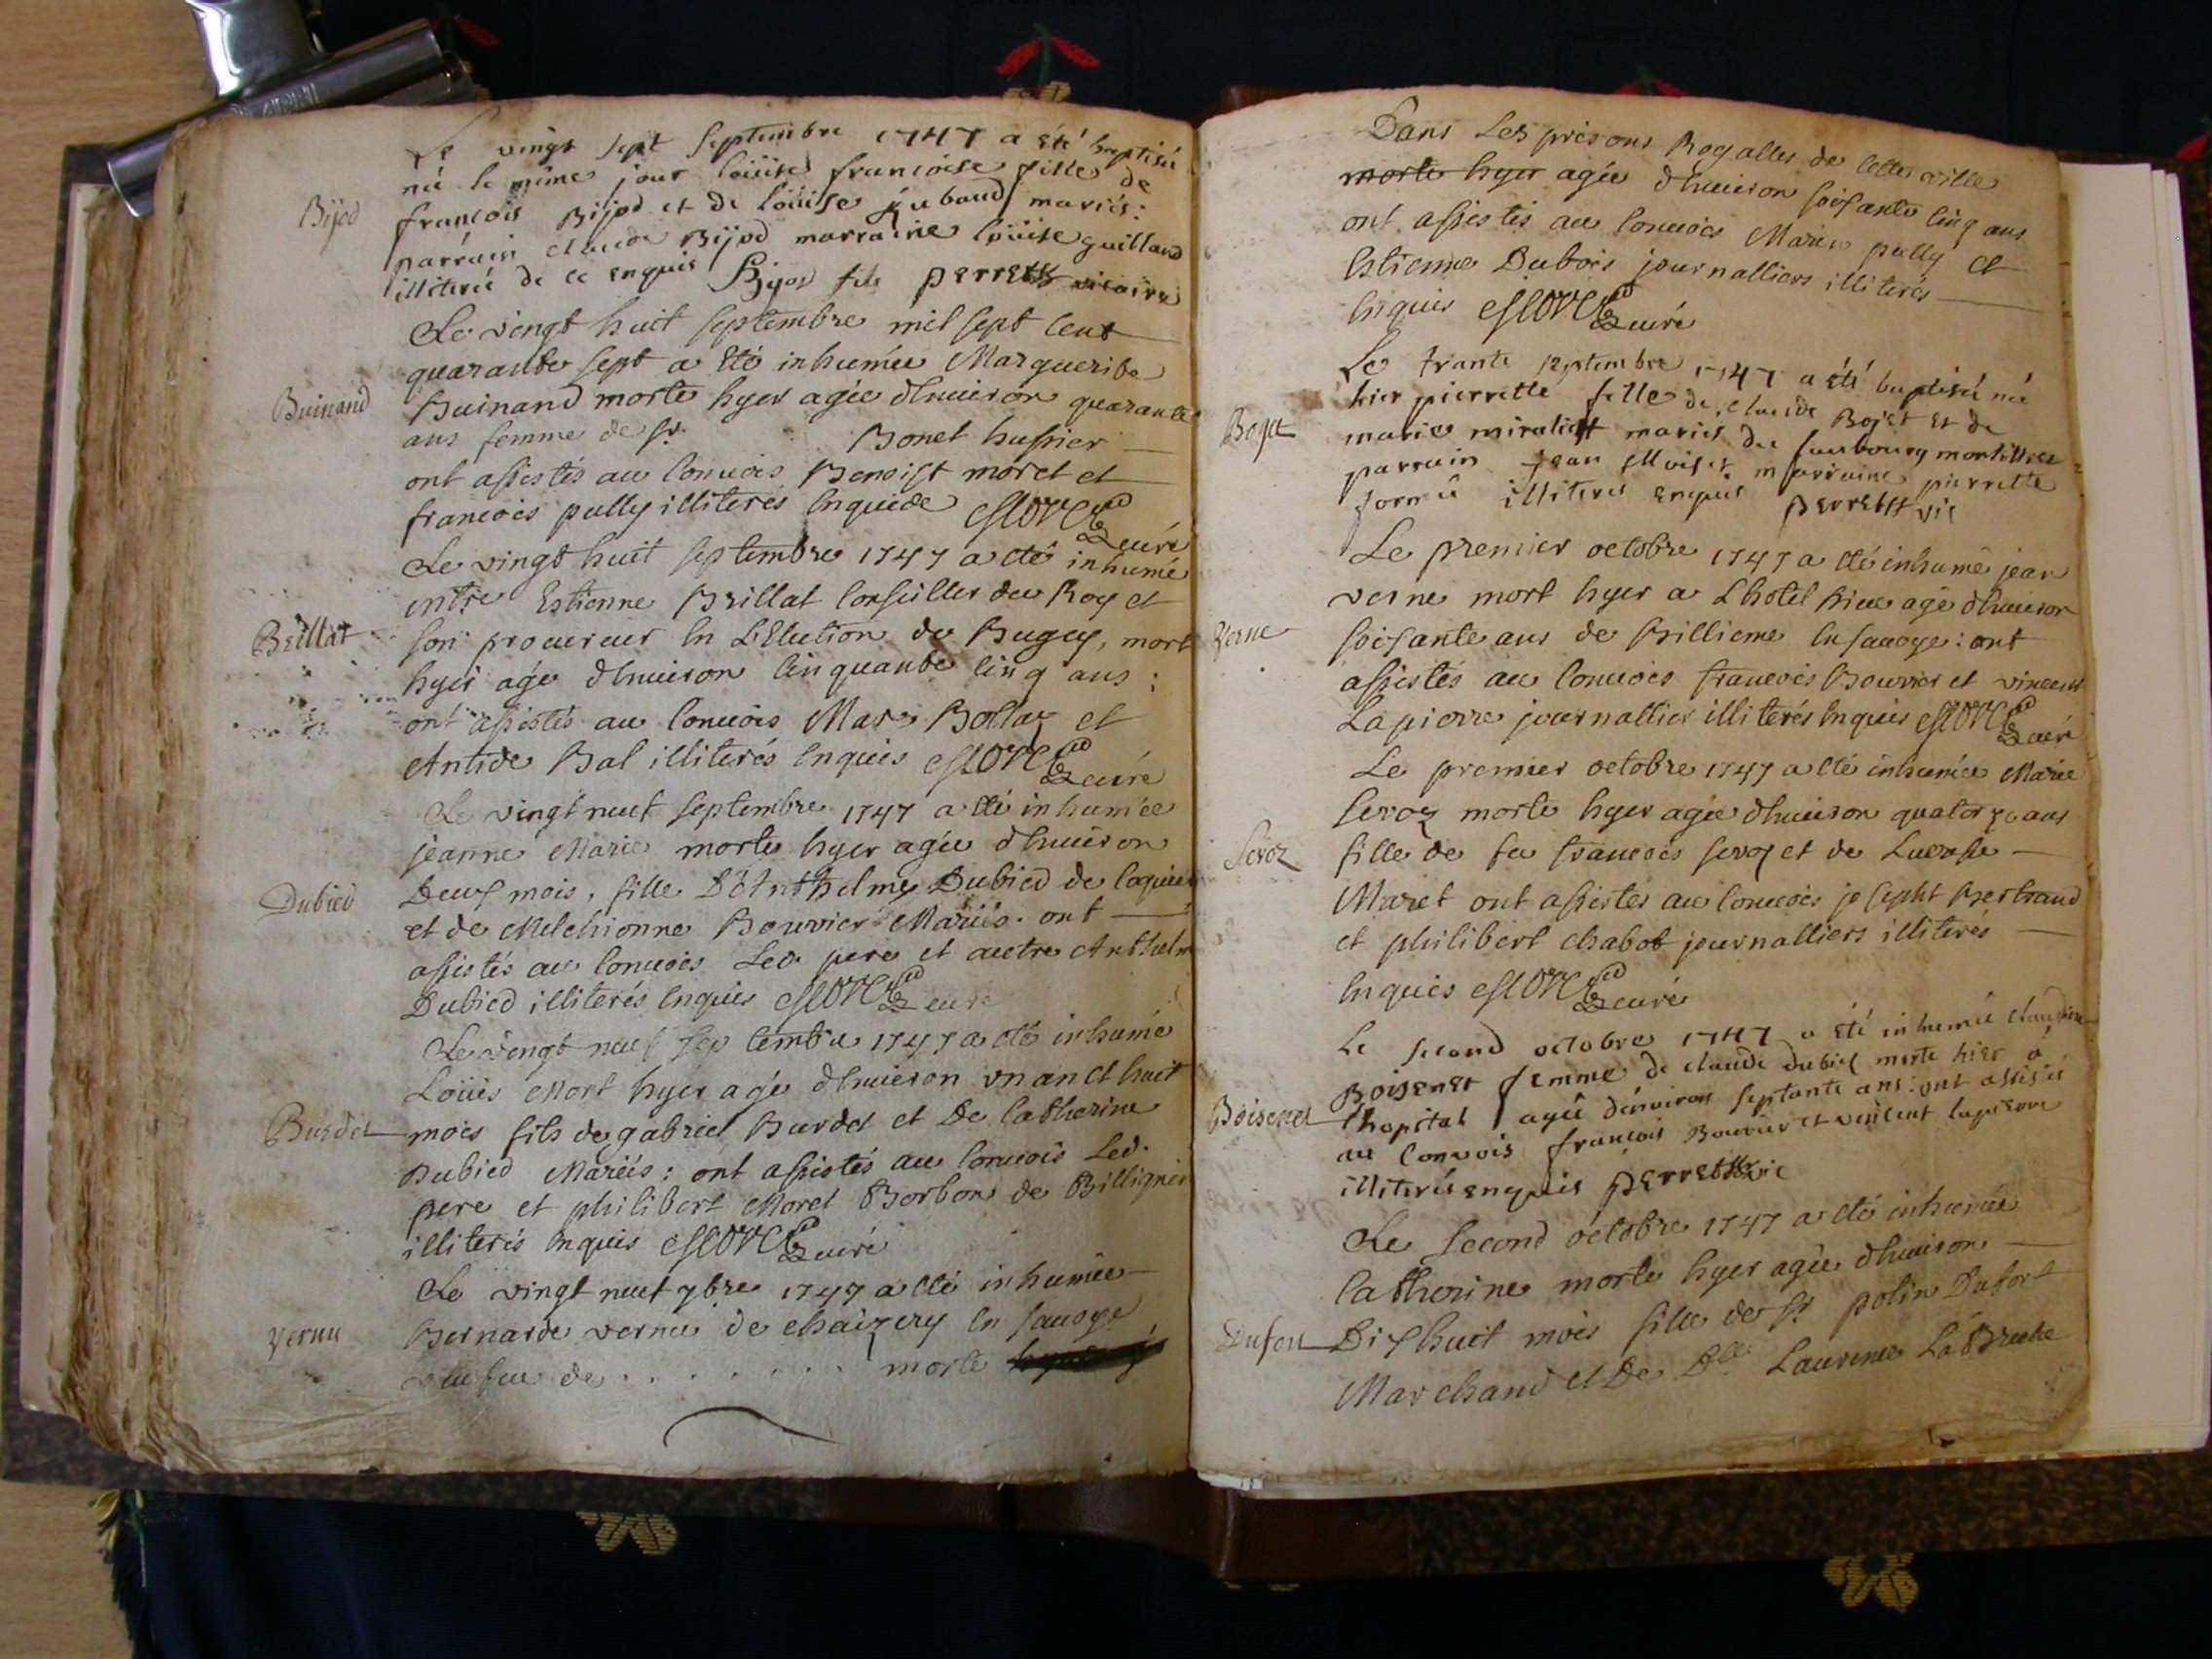 Le vingt sept septembre 1747 a été baptisée
née le même jour loüise françoise fille de
Bijod
françois Bijod et de loüise jubaud mariés:
parrain claude Bijod marraine loüise guilland
illiterée de ce enquis Bijod fils perret vicaire
Le vingt huit septembre mil sept cent
quarante sept a été inhumée Marguerite
Buinand
Buinand morte hyer agée d'enuiron quarante
ans femme de sr. Bonet hussier
ont assistés au conuois Benoist moret et
francois pully illiterés enquide curé
Le vingt huit septembre 1747 a eté inhumé
Estienne Brillat conseiller du Roy et
Brillat
son procureur en L'Election de Bugey, mort
hyer agé d'enuiron cinquante cinq ans:
ont assistés au conuois Marc Bottaz et
Antide Bal illiterés enquis curé
Le vingt neuf septembre 1747 a eté inhumée
jeanne Marie morte hyer agée d'enuiron
Dubied
Deux mois, fille D'Anthelme Dubied de
et de Melchionne Bouvier Mariés. ont
assistés au conuois Led. pere et autre Anthelme
Dubied illiterés enquis curé
Le vingt neuf septembre 1747 a eté inhumé
Loüis Mort hyer agé d'enuiron un an et huit
Burdet
mois fils de gabriel Burdet et De Catherine
Dubied Mariés: ont assistés au conuois Led.
pere et philibert Moret Borbon de Billignin
illiterés enquis curé
Le vingt neuf 7bre 1747 a eté inhumée
Vernu
Bernarde vernu de chaizery en sauoye
veufue de . . . . . . . morte
Dans Les prisons Royalles de cette ville
morte hyer agée d'enuiron soisante cinq ans
ont assistés au conuois Marin pully et
Estienne Dubois journalliers illiterés
enquis curé
Le trante septembre 1747 a été baptisée née
hier pierrette fille de claude Bojet et de
Bojet
marie miraliet mariés du faubourg
parrain jean marraine pierrette
illiterés enquis perret vic
Le premier octobre 1747 a eté inhumé jean
verne mort hyer a L'hotel Dieu agé d'enuiron
Verne
soisante ans de Billieme en sauoye: ont
assistés au conuois francois Bouvier et vincent
Lapierre journallier illiterés enquis curé
Le premier octobre 1747 a eté inhumée Marie
Seroz morte hyer agée d'enuiron quatorze ans
Seroz
fille de feu francois seroz et de Lucresse
Maret ont assistés au conuois josepht Bertrand
et philibert chabot journalliers illiterés
enquis curé
Le second octobre 1747 a été inhumée claudine
Boisenet femme de claude dubied morte hier a
Boisenet
l'hopital agée d'environ septante ans: ont assistés
au convois françois Bouvier et vincent lapierre
illiterés enquis perret vic
Le second octobre 1747 a eté inhumée
Catherine morte hyer agée d'enuiron
Dufou
Dix huit mois fille de sr. potin Dufort
Marchand et De Dlle Laurence